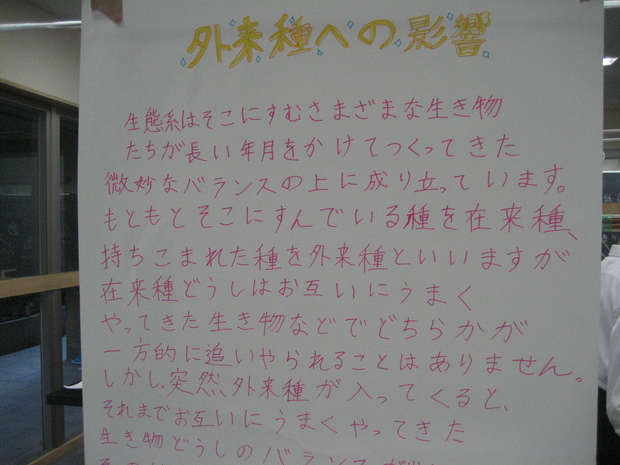 外来種への影響
生態系はそこにすむさまざまな生き物
たちが長い年月をかけてつくってきた
微妙なバランスの上に成り立っています。
もともとそこにすんでいる種を在来種、
持ちこまれた種を外来種といいますが
在来種どうしはお互いにうまく
やってきた生き物などでどちらかが
一方的に追いやられることはありません。
しかし、突然、外来種が入ってくると、
それまでお互いにうまくやってきた
生き物どうしのバランスが